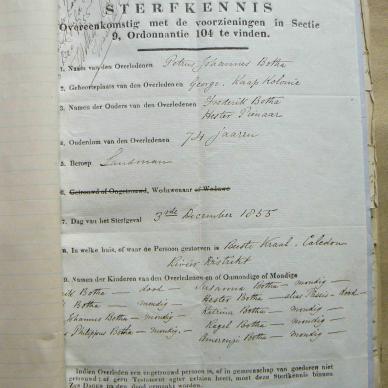 STERFKENNIS
Overeenkomstig met de voorzieningen in Sectie
9, Ordonnantie 104 te vinden.
1. Naam van den Overledenen Petrus Johannes Botha
2. Geboorteplaats van den Overledenen George, Kaap Kolonie
3. Namen der Ouders van den Overledenen Frederik Botha
Hester Pienaar
4. Ouderdom van den Overledenen 74 jaaren
5. Beroep Landman
6. Getrouwd of Ongetrouwd, Weduwenaar of Weduwe
7. Dag van het Sterfgeval 3de December 1855
8. In welke huis, of waar de Persoon gestorven is Kraal, Caledon
Rivier Distrikt
9. Namen der Kinderen van den Overledenen en of Onmondig of Mondig
Botha - dood - Susanna Botha - mondig -
Botha - mondig - Hester Botha - alias - dood -
Johannes Botha - mondig - Katrina Botha - mondig -
Philippus Botha - mondig - Ragel Botha - mondig -
Botha - mondig -
Indien Overleden een ongetrouwd persoon is, of in gemeenschap van goederen niet
getrouwd; of geen Testament agter gelaten heeft, moet deze Sterfkennis binnen
Zes Dagen na den dood gemaakt worden.